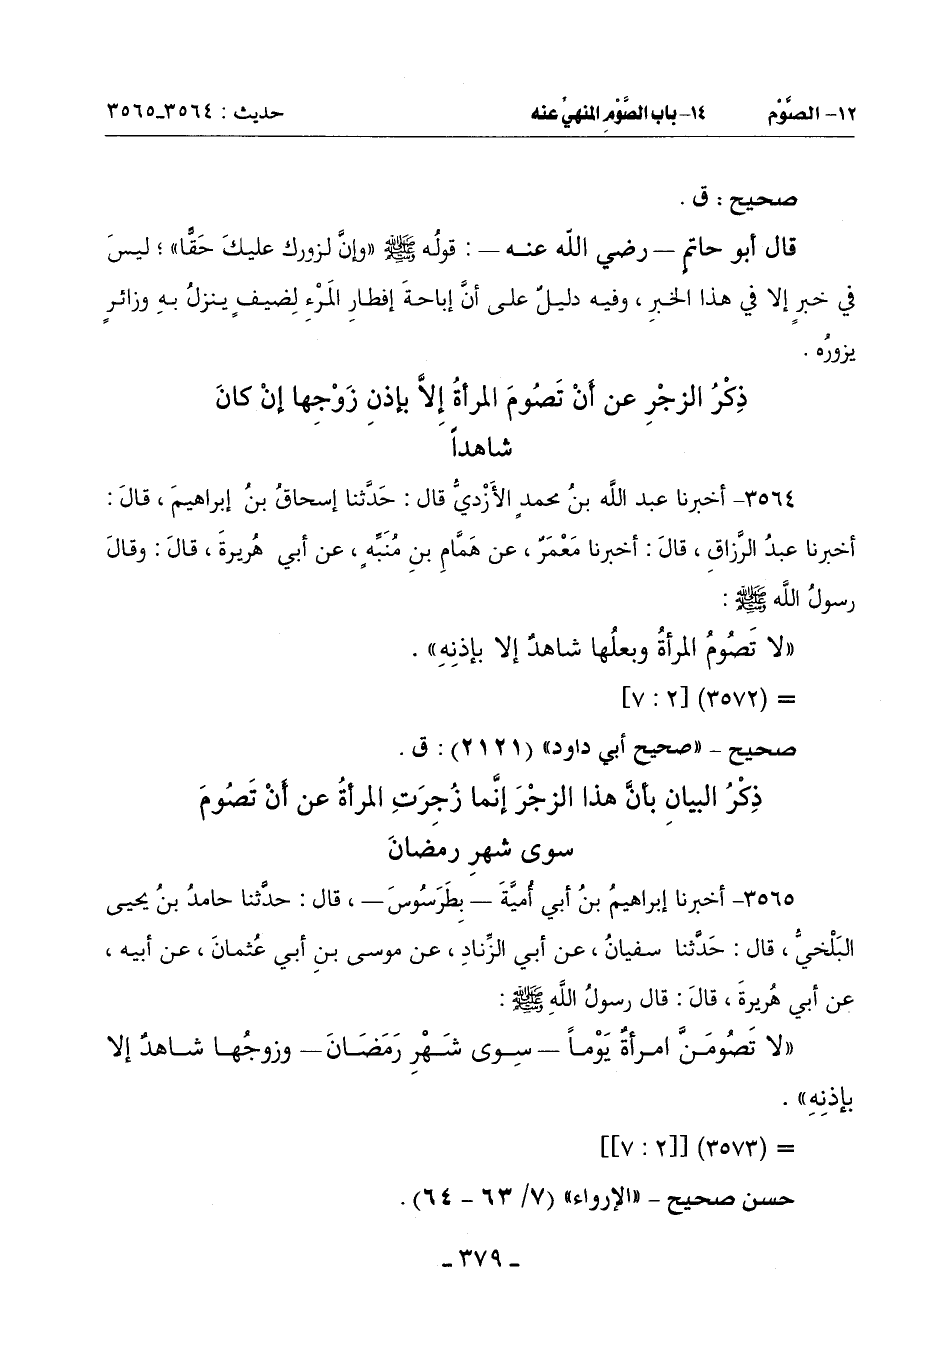 ١٢- الصَّوْم ١٤- باب الصَّوْمِ المنهيُّ عنه حديث : ٣٥٦٤-٣٥٦٥
صحيح : ق .
قال أبو حاتمٍ – رضي اللَّه عنه – : قولُه ﷺ «وإنَّ لزورك عليكَ حَقًّا» ؛ ليسَ
في خبرٍ إلا في هذا الخبرِ ، وفيه دليلٌ على أنَّ إباحةَ إفطارِ المَرْءِ لِضيفٍ ينزلُ بهِ وزائرٍ
يزورُه .
ذِكْرُ الزجْرِ عن أَنْ تَصُومَ المرأةُ إِلاَّ بإذنِ زَوْجِها إنْ كانَ
شاهداً
٣٥٦٤- أخبرنا عبد اللَّه بنُ محمدٍ الأَزْديُّ قال : حَدَّثنا إسحاقُ بنُ إبراهيمَ ، قالَ :
أخبرنا عبدُ الرَّزاقِ ، قالَ : أخبرنا مَعْمَرٌ ، عن هَمَّامِ بنِ مُنَبِّهٍ ، عن أبي هُريرةَ ، قالَ : وقالَ
رسولُ اللَّه ﷺ :
«لا تَصُومُ المرأةُ وبعلُها شاهدٌ إلا بإذنِهِ» .
= (٣٥٧٢) [٢ : ٧]
صحيح - «صحيح أبي داود» (٢١٢١) : ق .
ذِكْرُ البيانِ بأنَّ هذا الزجْرَ إنَّما زُجِرَتِ المرأةُ عن أنْ تَصُومَ
سوى شهرِ رمضانَ
٣٥٦٥- أخبرنا إبراهيمُ بنُ أبي أُميَّةَ – بِطَرَسُوسَ – ، قال : حدَّثنا حامدُ بنُ يحيى
البَلْخيُّ ، قال : حَدَّثنا سفيانُ ، عن أبي الزِّنادِ ، عن موسى بنِ أبي عُثمانَ ، عن أبيه ،
عن أبي هُريرةَ ، قالَ : قال رسولُ اللَّهِ ﷺ :
«لا تَصُومَنَّ امرأةٌ يَوْماً – سِوى شَهْرِ رَمَضَانَ – وزوجُها شاهدٌ إلا
بإذنِهِ» .
= (٣٥٧٣) [[٢ : ٧]]
حسن صحيح - «الإرواء» (٧/ ٦٣ - ٦٤) .
- ٣٧٩ -